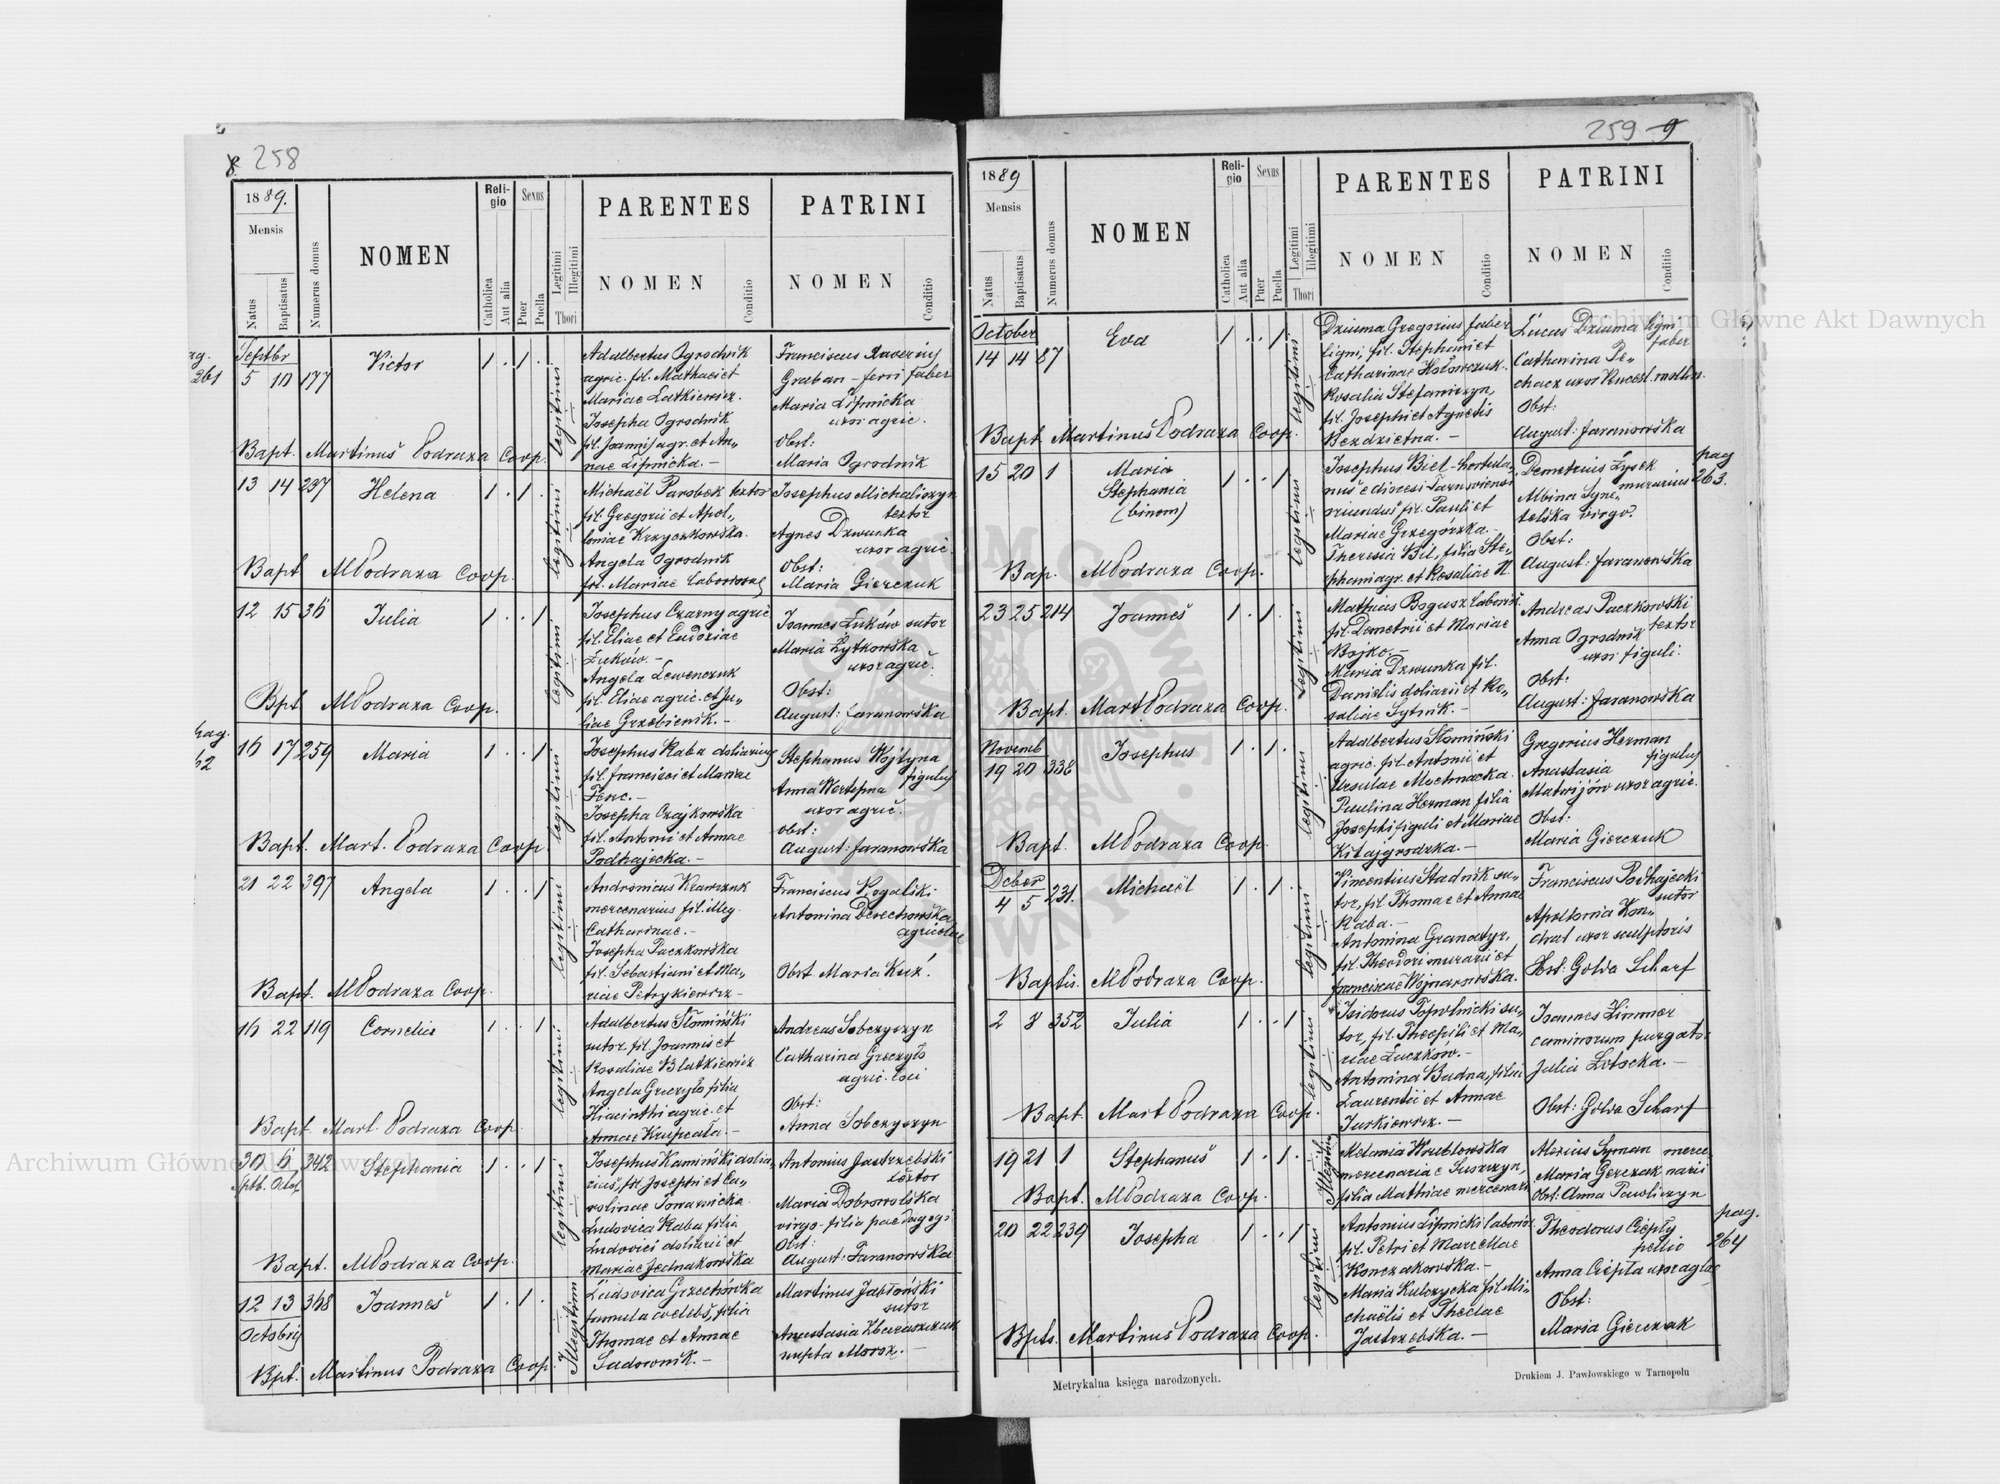 8 258
1889.
Mensis
Natus
Baptisatus
Numerus domus
NOMEN
Religio
Catholica
Aut alia
Sexus
Puer
Puella
Legitimi
Illegitimi
Thori
PARENTES
NOMEN
Conditio
PATRINI
NOMEN
Conditio
pag. 261
Septbr
5 10 177
Victor
1 . 1 .
legitimi
Adalbertus Ogrodnik
agric. fil. Mathaei et
Mariae Latkiewicz.
Josepha Ogrodnik
fil. Joannis agr. et An„
nae Lipnicka. —
Franciscus Xaverius
Graban - ferri faber
Maria Lipnicka
uxor agric.
Obst:
Maria Ogrodnik
Bapt. Martinus Podraza Coop.
13 14 237
Helena
1 . 1 .
legitimi
Michaël Parobek textor
fil. Gregorii et Apol„
loniae Krzyczkowska.
Angela Ogrodnik
fil. Mariae
Josephus Michaliszyn
textor
Agnes Dzwunka
uxor agric.
Obst:
Maria Gierczuk
Bapt MPodraza Coop.
12 15 36
Julia
1 . . 1
legitimi
Josephus Czarny agric
fil. Eliae et Eudoxiae
Łuków. —
Angela Lewenczuk
fil. Eliae agric. et Ju„
liae Grzebienik. —
Joannes Łuków sutor
Maria Żytkowska
uxor agric.
Obst:
August: Faranowska
Bpt MPodraza Coop.
pag. 262
16 17 259
Maria
1 . . 1
legitimi
Josephus Raba doliarius
fil. Francisci et Mariae
Fenc. —
Josepha Czajkowska
fil. Antonii et Annae
Podhajecka. —
Stephanus Wojtyna
figulus
Anna Wertepna
uxor agric.
Obst:
August: Faranowska
Bapt. Mart. Podraza Coop
21 22 397
Angela
1 . . 1
legitimi
Andronicus Krawczuk
mercenarius fil. illeg.
Catharinae. —
Josepha Paczkowska
fil. Sebastiani et Ma„
riae Petrykiewicz —
Franciscus Rogalski
Antonina Derechowska
agricolae
Obst. Maria Kuź.
Bapt. MPodraza Coop.
16 22 119
Cornelia
1 . . 1
legitimi
Adalbertus Słomiński
sutor, fil. Joannis et
Rosaliae Blatkiewicz
Angela Greczyło filia
Hiacinthi agric. et
Annae Krupcała. —
Andreas Sobczyszyn
Catharina Greczyło
agric. loci
Obst:
Anna Sobczyszyn
Bapt. Mart. Podraza Coop
30 6 342
Sptb. Octob
Stephania
1 . . 1
legitimi
Josephus Kamiński dolia„
rius, fil. Josephi et Ca„
rolinae Towarnicka
Ludovica Raba filia
Ludovici doliarii et
Mariae Jednakowska
Antonius Jastrzębski
textor
Maria Dobrowolska
virgo - filia paedagogi
Obst:
August: Faranowska
Bapt. MPodraza Coop.
12 13 368
Octobris
Joannes
1 . 1 .
Illegitimi
Ludovica Grzechówka
famula coelebs, filia
Thomae et Annae
Sadownik. —
Martinus Jabłoński
sutor
Anastasia
nupta Moroz. —
Bpt. Martinus Podraza Coop.
259 9
1889
Mensis
Natus
Baptisatus
Numerus domus
NOMEN
Religio
Catholica
Aut alia
Sexus
Puer
Puella
Legitimi
Illegitimi
Thori
PARENTES
NOMEN
Conditio
PATRINI
NOMEN
Conditio
October
14 14 87
Eva
1 . . 1
legitimi
Dziuma Gregorius faber
ligni, fil. Stephani et
Catharinae Hołowczuk.
Rosalia Stefaniszyn,
fil. Josephi et Agnetis
Bezdzietna. —
Lucas Dziuma ligni
faber
Catharina Pe„
chacz uxor Vencesl. molln.
Obst:
August: Faranowska
Bapt. Martinus Podraza Coop.
pag 263.
15 20 1
Maria
Stephania
(binom)
1 . . 1
legitimi
Josephus Biel - hortula„
nus e diocesi Tarnoviensi
oriundus, fil. Pauli et
Mariae Grzegórzka. —
Theresia Bil, filia Ste„
phani agr. et Rosaliae N.
Demetrius Łysek
murarius
Albina Syne„
telska virgo.
Obst:
August: Faranowska
Bap. MPodraza Coop.
23 25 214
Joannes
1 . 1 .
legitimi
Mathias Bogusz laborios.
fil. Demetrii et Mariae
Bojko. —
Maria Dzwunka fil.
Danielis doliarii et Ro„
saliae Sytnik. —
Andreas Paczkowski
textor
Anna Ogrodnik
uxor figuli.
Obst:
August: Faranowska
Bapt. Mart Podraza Coop.
Novemb
19 20 338
Josephus
1 . 1 .
legitimi
Adalbertus Słomiński
agric. fil. Antonii et
Ursulae Mochnacka.
Paulina Herman filia
Josephi figuli et Mariae
Kitajgrodzka. —
Gregorius Herman
figulus
Anastasia
Matwijów uxor agric.
Obst:
Maria Gierczuk
Bapt. MPodraza Coop.
Dcber
4 5 231.
Michaël
1 . 1 .
legitimi
Vincentius Stadnik su„
tor, fil. Thomae et Annae
Raba. —
Antonina Granatyr,
fil. Theodori murarii et
Franciscae Wojnarowska.
Franciscus Podhajecki
sutor
Apollonia Kon„
drat uxor sculptoris
Obst: Golda Scharf
Baptis. MPodraza Coop.
2 8 352
Julia
1 . . 1
legitimi
Isidorus Topolnicki su„
tor, fil. Theophili et Ma„
riae Łuczków. —
Antonina Budna, filia
Laurentii et Annae
Turkiewicz. —
Joannes Zimmer
caminorum purgator
Julia Zotocka. —
Obst: Golda Scharf
Bapt. Mart Podraza Coop.
19 21 1
Stephanus
1 . 1 .
Illegitimi
Melania Wrublowska
mercenaria e Suszczyn,
filia Mathiae mercenarii
Alexius Syman merce„
Maria Gerczak narii
Obst: Anna Pawliszyn
Bapt. MPodraza Coop.
pag. 264
20 22 239
Josepha
1 . . 1
legitimi
Antonius Lipnicki laborios.
fil. Petri et Marcellae
Konczakowska. —
Maria Kulczycka fil. Mi„
chaëlis et Theclae
Jastrzębska. —
Theodorus Ciepły
pellio
Anna Ciepła uxor agric
Obst:
Maria Gierczak
Bpts. Martinus Podraza Coop.
Metrykalna księga narodzonych.
Drukiem J. Pawłowskiego w Tarnopolu
Archiwum Główne Akt Dawnych
Archiwum Główne Akt Dawnych